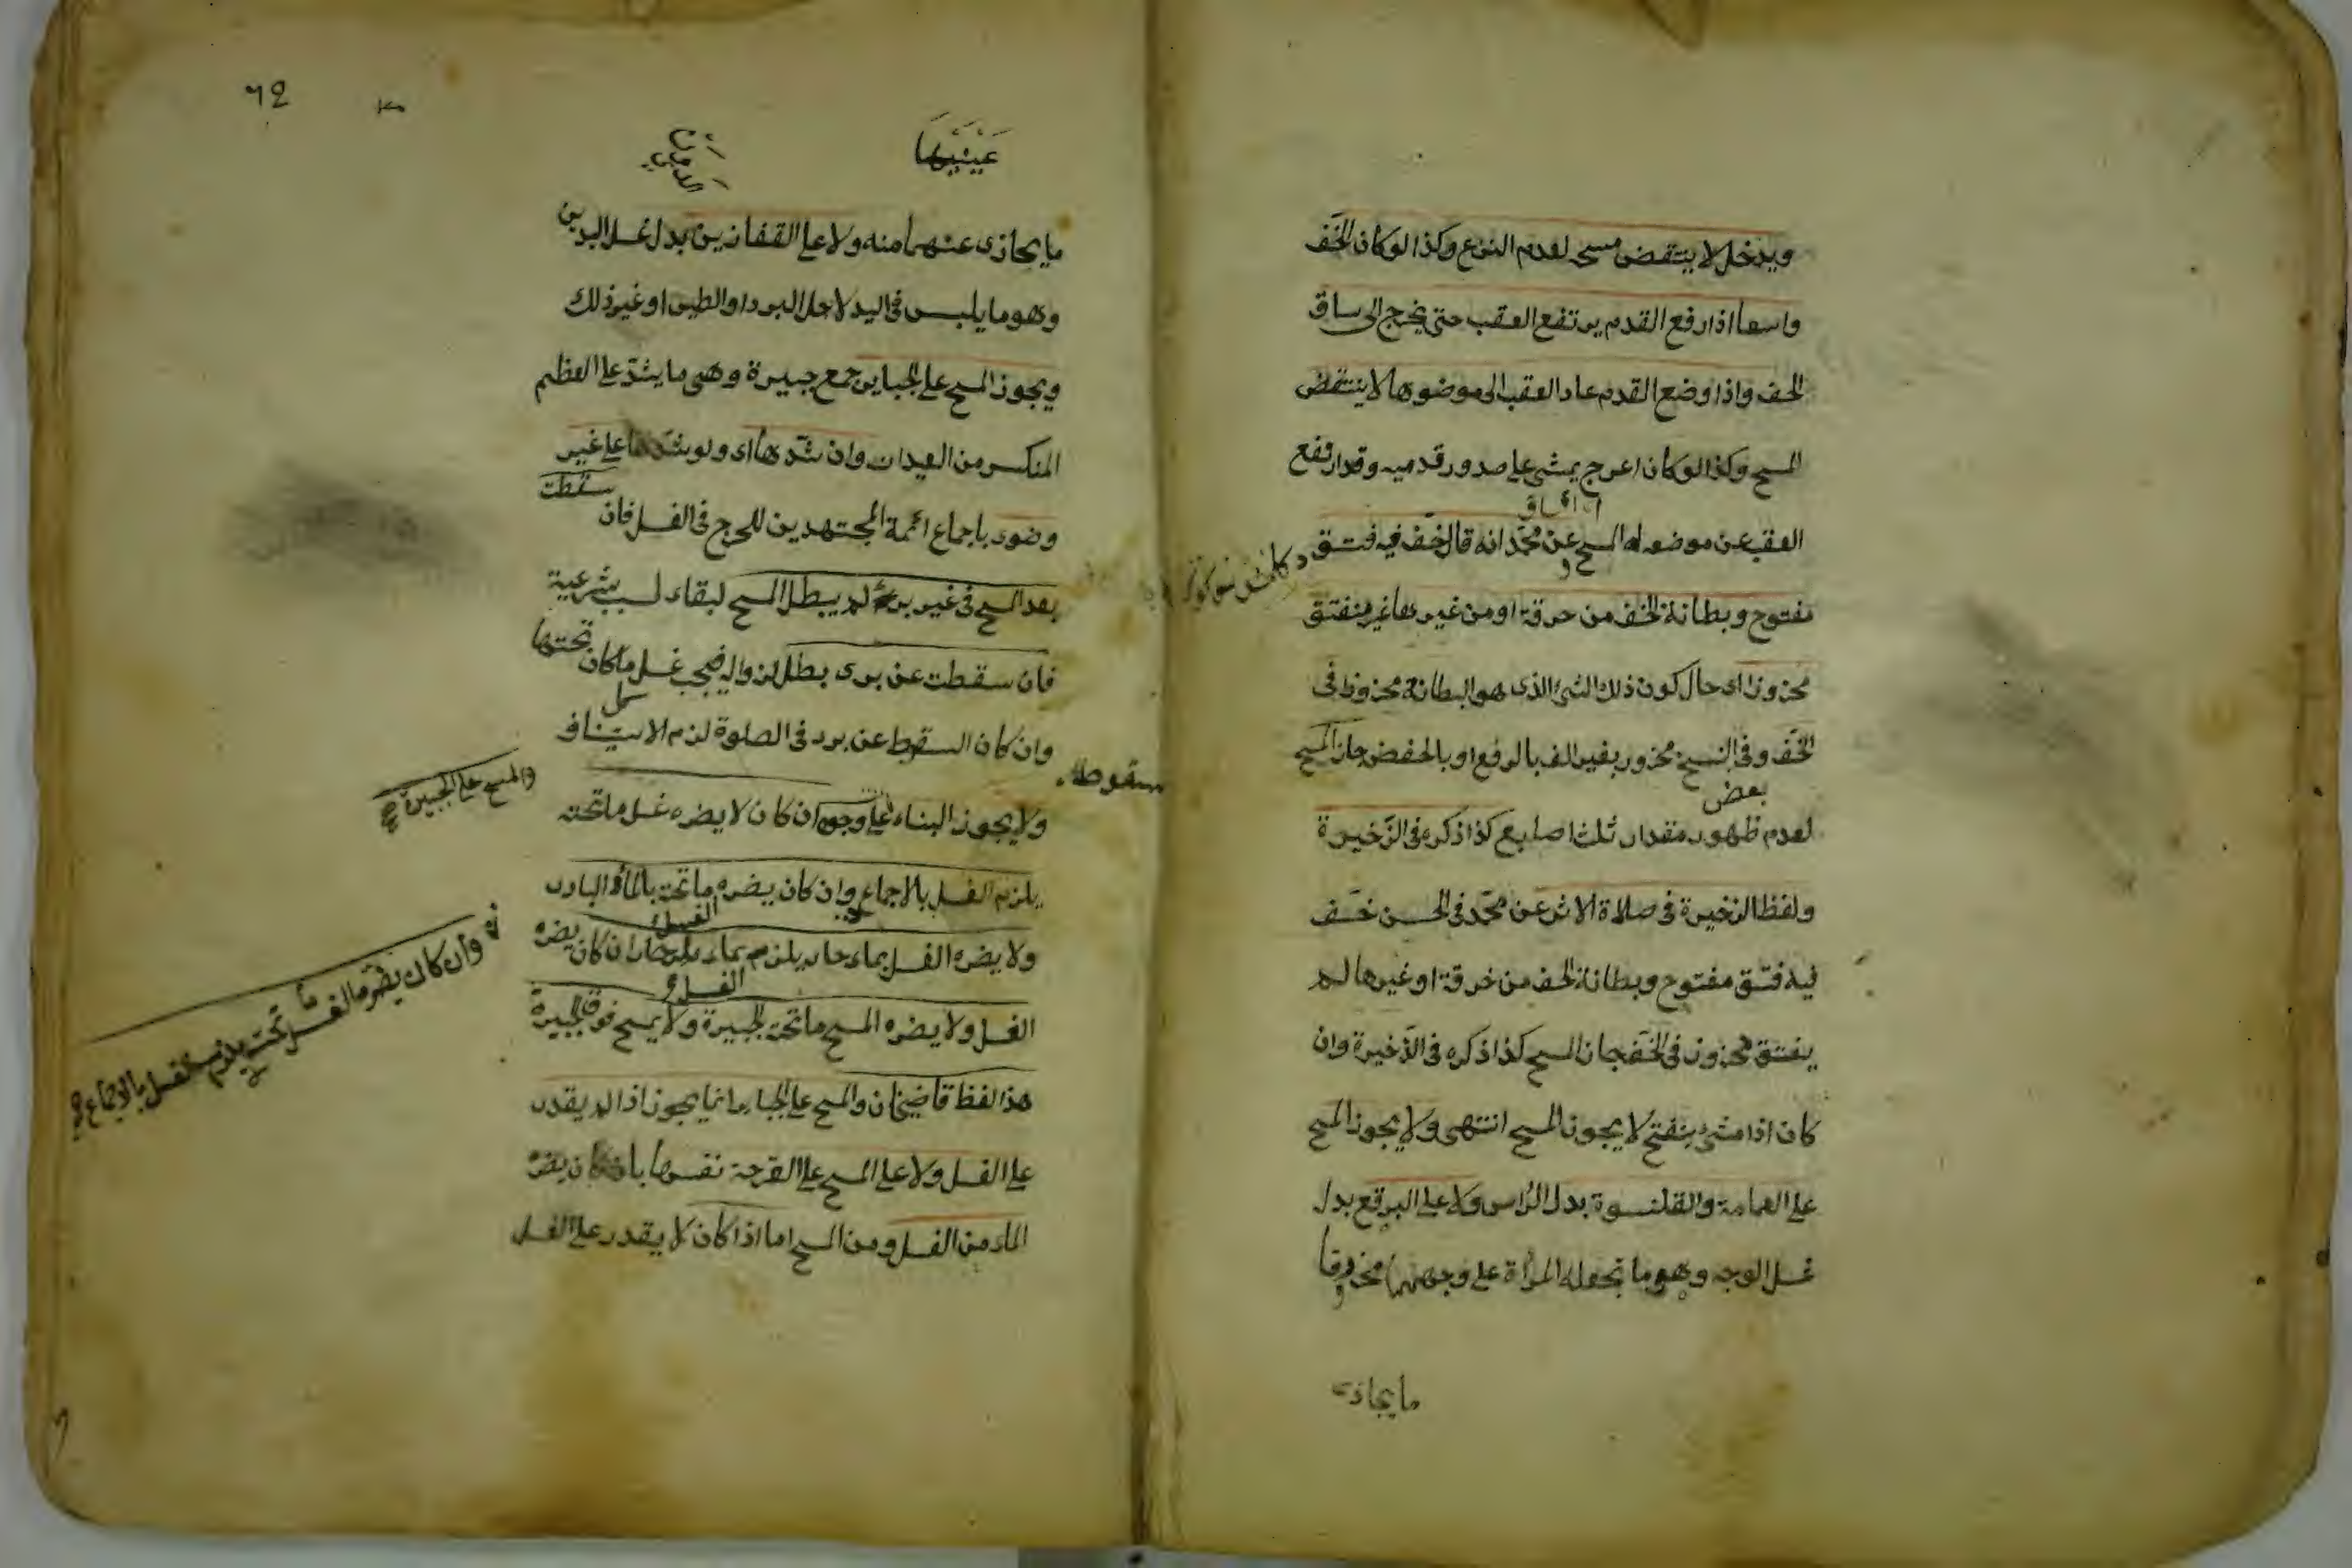 ويدخل لا ينتقض مسحه لعدم النزع وكذا لو كان الخف
واسعا اذا رفع القدم يرتفع العقب حتى يخرج الى ساق
الخف واذا وضع القدم عاد العقب الى موضوعها لا ينتقض
المسح وكذا لو كان اعرج يمشى على صدور قدميه وقد ارتفع
العقب عن موضعه له المسح وعن محمد انه قال خف فيه فتق
مفتوح وبطانة الخف من خرقة او من غيرها غير منفتق
مخروزا اى حال كون ذلك الشئ الذى هو البطانة مخروزا فى
الخف وفى النسخ مخروز بغير الف بالرفع او بالخفض جاز المسح
بعض
لعدم ظهور مقدار ثلث اصابع كذا ذكره فى الذخيرة
ولفظ الذخيرة فى صلاة الاثر عن محمد فى الحسن خف
فيه فتق مفتوح وبطانة الخف من خرقة او غيرها لم
يفتق مخروز فى الخف جاز المسح كذا ذكره فى الذخيرة وان
كان اذا مشى ينفتح لا يجوز المسح انتهى ولا يجوز المسح
على العمامة والقلنسوة بدل الراس ولا على البرقع بدل
غسل الوجه وهو ما تجعله المرأة على وجهها مخروقا
ما يحاذى
٦٤
عَيْنَيْهَا
ما يحاذى عنهما منه ولا على القفازين بدل غسل اليدين
وهو ما يلبس فى اليد لاجل البرد او الطين او غير ذلك
ويجوز المسح على الجباير جمع جبيرة وهى ما يشد على العظم
المنكسر من العيدان وان شدها اى ولو شدها على غير
وضوء باجماع ائمة المجتهدين للحرج فى الغسل فان سقطت
بعد المسح فى غير برء لم يبطل المسح لبقاء لسبب شرعية
فان سقطت عن برء بطل لزواله فيجب غسل ما كان تحتها
وان كان السقوط عن برء فى الصلوة لزم الاستيناف
سقوط
ولا يجوز البناء على وجوه ان كان لا يضره غسل ما تحته
والمسح على الجبيرة
يلزم الغسل بالاجماع وان كان يضره ما تحته بالماء البارد
الغسل
ولا يضره الغسل بماء حار يلزم بماء حار ان كان يضره
الغسل
الغسل ولا يضره المسح ما تحته الجبيرة ولا يمسح فوق الجبيرة
وان كان يضره الغسل ما تحته يلزم بالاجماع
هذا لفظ قاضيخان والمسح على الجباير انما يجوز اذا لم يقدر
على الغسل ولا على المسح على القرحة نفسها بان كان يضره
الماء من الغسل ومن المسح اما اذا كان لا يقدر على الغسل